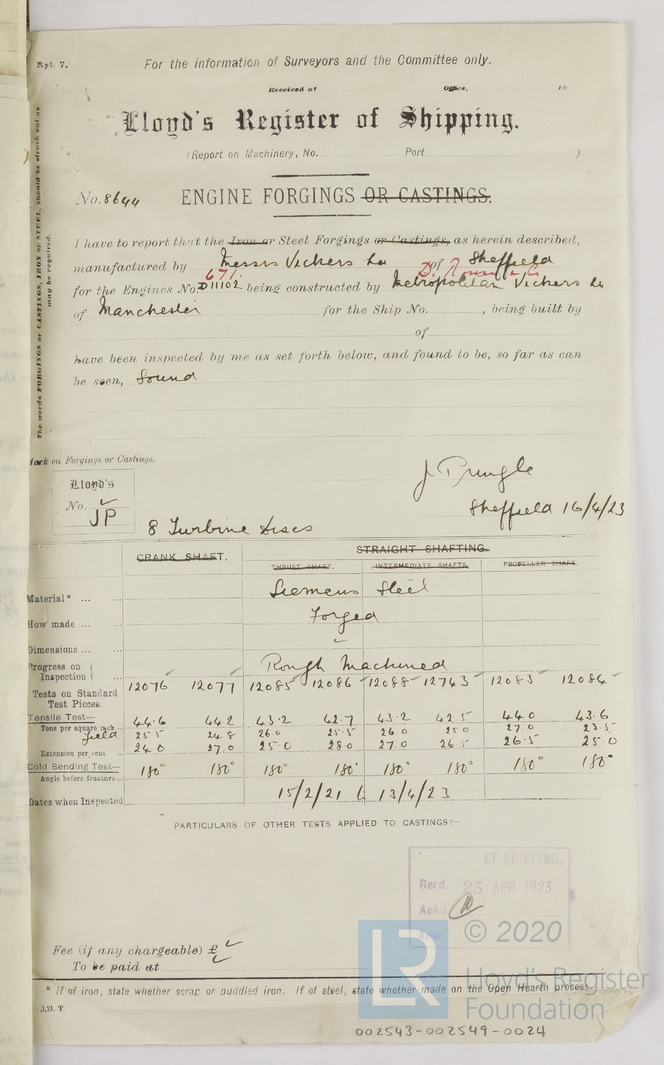 Rpt. 7.
For the information of Surveyors and the Committee only.
Received at Office, 19
Lloyd's Register of Shipping.
(Report on Machinery, No. Port )
No. 8644 ENGINE FORGINGS OR CASTINGS.
The words FORGINGS or CASTINGS, IRON or STEEL, should be struck out as may be required.
I have to report that the Iron or Steel Forgings or Castings, as herein described,
manufactured by Messrs Vickers Ld of Sheffield
671.
for the Engines No. D11102 being constructed by Metropolitan Vickers Ld
of Manchester for the Ship No. , being built by
of
have been inspected by me as set forth below, and found to be, so far as can
be seen, Sound
Mark on Forgings or Castings.
Lloyd's
No.
JP
J Pringle
Sheffield 16/4/23
8 Turbine Discs
CRANK SHAFT. STRAIGHT SHAFTING.
THRUST SHAFT. INTERMEDIATE SHAFTS. PROPELLER SHAFT.
Material* ... ... Siemens Steel
How made ... ... Forged
Dimensions ... ...
Progress on Inspection Rough Machined
Tests on Standard Test Pieces. 12076 12077 12085 12086 12088 12743 12083 12084
Tensile Test—
Tons per square inch 44.6 44.2 43.2 42.7 43.2 42.5 44.0 43.6
Yield 25.5 24.8 26.0 25.5 26.0 25.0 27.0 23.5
Extension per cent 24.0 27.0 25.0 28.0 27.0 26.5 26.5 25.0
Cold Bending Test—
Angle before fracture 180° 180° 180° 180° 180° 180° 180° 180°
Dates when Inspected 15/2/21 to 13/4/23
PARTICULARS OF OTHER TESTS APPLIED TO CASTINGS:—
OF SHIPPING.
Recd. 23 APR 1923
Ackd.
Fee (if any chargeable) £
To be paid at
* If of iron, state whether scrap or puddled iron. If of steel, state whether made on the Open Hearth process.
J,21. T.
LR
© 2020
Lloyd's Register
Foundation
002543-002549-0024